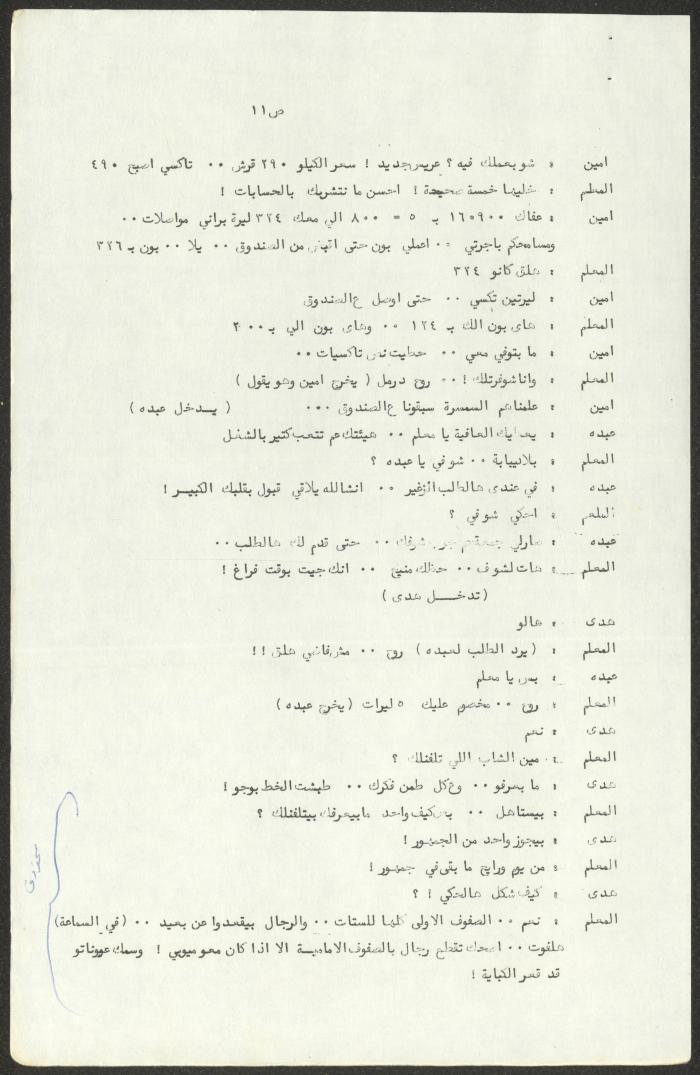 ص ١١
امين : شو بعملك فيه ؟ عريس جديد ! سعر الكيلو ٢٩٠ قرش ٠٠ تاكسي اصبح ٤٩٠
المعلم : خليها خمسة صحيحة ! احسن ما نتشربك بالحسابات !
امين : عفاك ١٦٠٩٠٠ بـ ٥ = ٨٠٠ الي معك ٣٢٤ ليرة براني مواصلات ٠٠
ومسامحكم باجرتي ٠٠ اعملي بون حتى اقبض من الصندوق ٠٠ يلا ٠٠ بون بـ ٣٢٦
المعلم : هلق كانو ٣٢٤
امين : ليرتين تكسي ٠٠ حتى اوصل ع الصندوق
المعلم : هاى بون الك بـ ١٢٤ ٠٠ وهاى بون الي بـ ٢٠٠
امين : ما بتوفي معي ٠٠ حطيت نص تاكسيات ٠٠
المعلم : وانا شوفرتلك ! ٠٠ روح درمل ( يخرج امين وهو يقول )
امين : علمناهم السمسرة سبقونا ع الصندوق ٠٠٠ ( يـدخل عبده )
عبده : يعطيك العافية يا معلم ٠٠ هيئتك عم تتعب كتير بالشغل
المعلم : بلاهيبابة ٠٠ شو في يا عبده ؟
عبده : في عندى هالطلب الزغير ٠٠ انشالله يلاقي قبول بقلبك الكبيـر !
المعلم : احكي شو في ؟
عبده : صارلي جمعة شوفك ٠٠ حتى قدم لك هالطلب ٠٠
المعلم : هات لشوف ٠٠ حظك منيح ٠٠ انك جيت بوقت فراغ !
( تدخـــل هدى )
هدى : هالو
المعلم : ( يرد الطلب لعبده ) روح ٠٠ مش فاضي هلق !!
عبده : بس يا معلم
المعلم : روح ٠٠ مخصوم عليك ٥ ليرات ( يخرج عبده )
هدى : نعم
المعلم : مين الشاب اللي تلفنلك ؟
هدى : ما بعرفو ٠٠ وع كل طمن فكرك ٠٠ طبشت الخط بوجو !
المعلم : بيستاهل ٠٠ بس كيف واحد مابيعرفك بيتلفنلك ؟
هدى : بيجوز واحد من الجمهور !
المعلم : من يوم ورايح ما بقى في جمهور !
هدى : كيف شكل هالحكي ! ؟
المعلم : نعم ٠٠ الصفوف الاولى كلها للستات ٠٠ والرجال بيقعدوا عن بعيد ٠٠ ( في السماعة )
هلفوت ٠٠ اصحك تقطع رجال بالصفوف الاماميـة الا اذا كان معو ميوبي ! وسمك عويناتو
قد قعر الكباية !